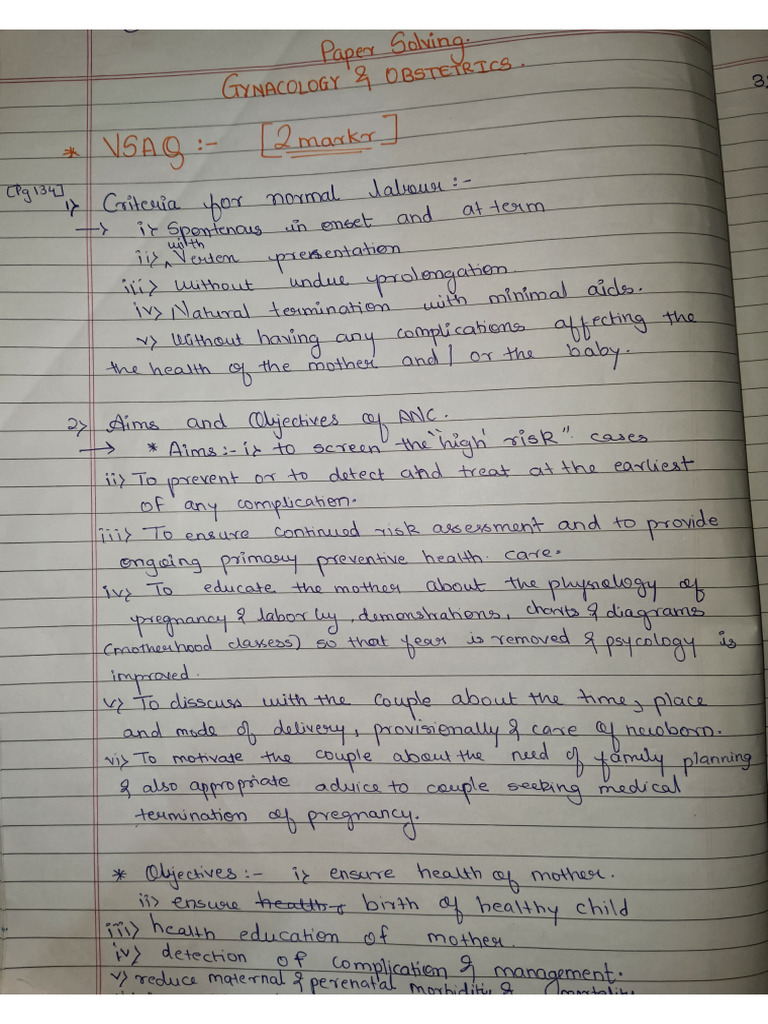 Paper Solving.
GYNACOLOGY & OBSTETRICS.
3
* VSAQ :- [2 marks]
[Pg 134]
1) Criteria for normal labour :-
→ i) Spontenous in onset and at term
ii) with Vertex presentation
iii) without undue prolongation.
iv) Natural termination with minimal aids.
v) Without having any complications affecting the
the health of the mother and / or the baby.
2) Aims and Objectives of ANC.
→ * Aims :- i) to screen the "high risk" cases
ii) To prevent or to detect and treat at the earliest
of any complication.
iii) To ensure continued risk assessment and to provide
ongoing primary preventive health care.
iv) To educate the mother about the physiology of
pregnancy & labor by, demonstrations, charts & diagrams
(motherhood classess) so that fear is removed & psycology is
improved.
v) To disscuss with the couple about the time, place
and mode of delivery, provisionally & care of newborn.
vi) To motivate the couple about the need of family planning
& also appropriate advice to couple seeking medical
termination of pregnancy.
* Objectives :- i) ensure health of mother.
ii) ensure birth of healthy child
iii) health education of mother.
iv) detection of complication & management.
v) reduce maternal & perenatal morbidity &